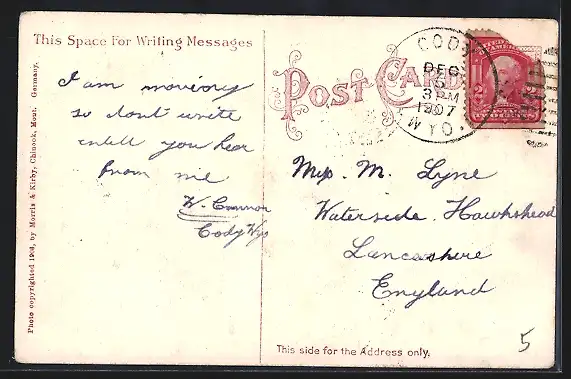 This Space For Writing Messages
I am moveing
so dont write
untill you hear
from me
W. Cannon
Cody Wyo
Photo copyrighted 1903, by Morris & Kirby, Chinook, Mont. Germany.
POST CARD
CODY
DEC
5
3 PM
1907
WYO.
2
Miss. M. Lyne
Waterside. Hawkshead
Lancashire
England
This side for the Address only.
5